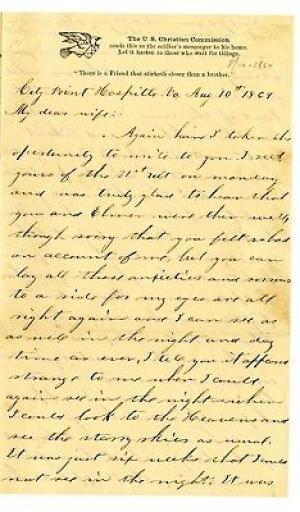 The U. S. Christian Commission
sends this as the soldier's messenger to his home.
Let it hasten to those who wait for tidings.
"There is a Friend that sticketh closer than a brother."
City Point Hospitle Va Aug 10th 1864
My dear wife:
Again have I taken the
opertunity to write to you I recd
yours of the 31st Ult on monday
and was truly glad to hear that
you and Elmer were then well
though sorry that you felt so bad
on account of me, but you can
lay all those anxieties and
to a side for my eyes are all
right again and I can see as
as well in the night and day
time as ever, I tell you it appeared
strange to me when I could
again see in the night when
I could look to the Heavens and
see the starry skies as usual.
It was just six weeks that I could
not see in the night. It was